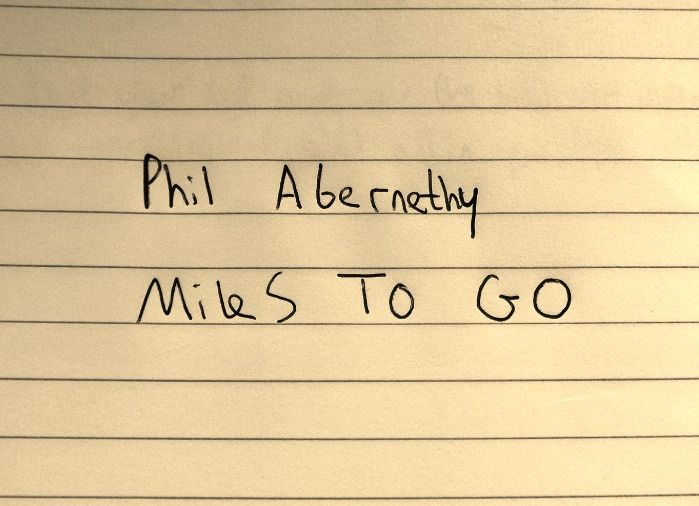 Phil Abernethy
Miles To GO